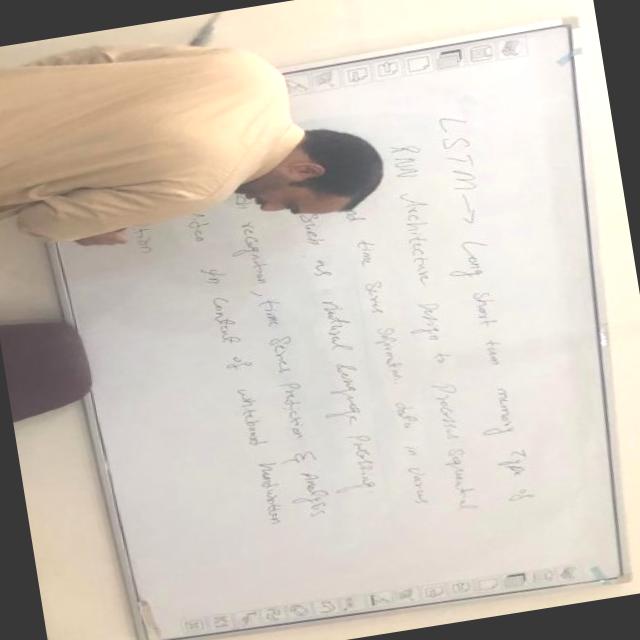 LSTM → Long short term memory Type of
RNN Architecture Design to Process Sequential
time Series data in various
as natural language Processing
recognition, time Series Prediction & Analysis
in context of whiteboard